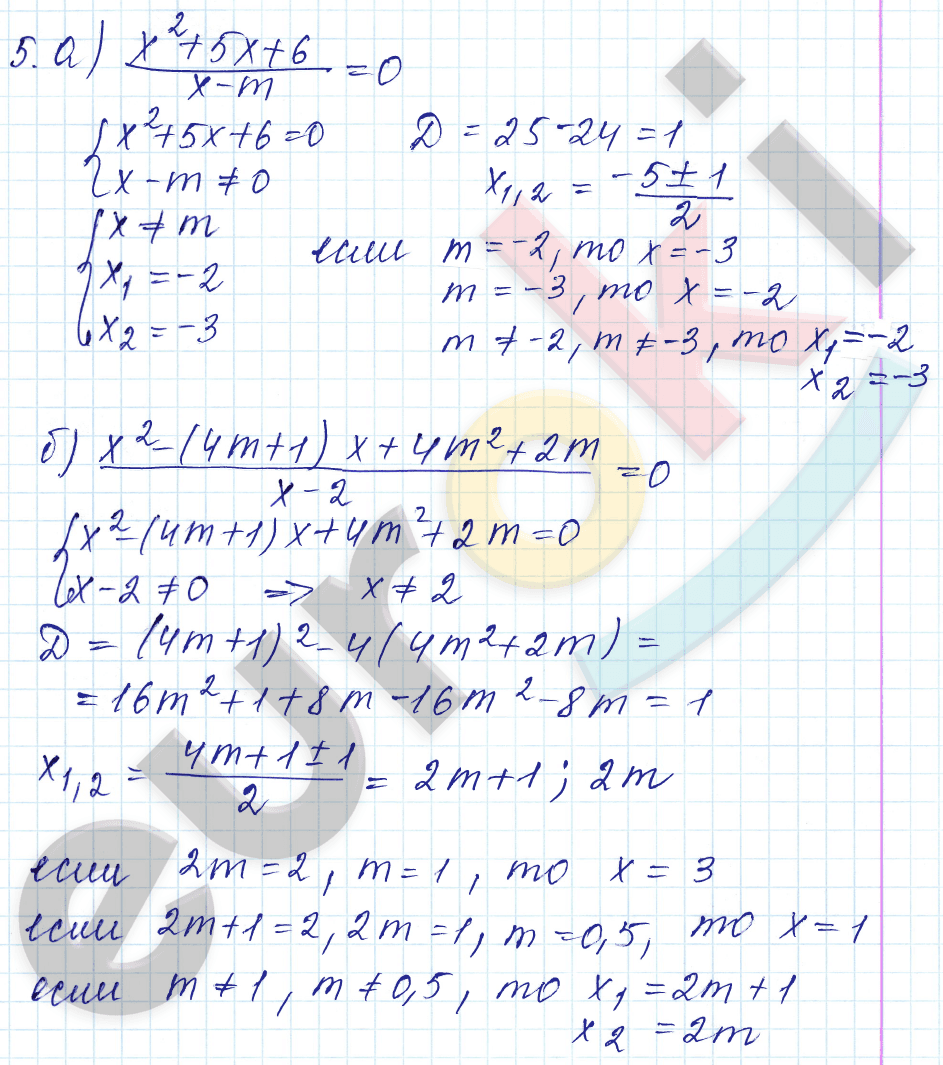 5. а) (x²+5x+6)/(x-m) = 0
{ x²+5x+6=0    D = 25-24=1
{ x-m≠0    x₁,₂ = (-5±1)/2
{ x≠m    если m=-2, то x=-3
{ x₁=-2    m=-3, то x=-2
{ x₂=-3    m≠-2, m≠-3, то x₁=-2
x₂=-3
б) (x²-(4m+1)x+4m²+2m)/(x-2) = 0
{ x²-(4m+1)x+4m²+2m=0
{ x-2≠0 => x≠2
D = (4m+1)²-4(4m²+2m) =
=16m²+1+8m-16m²-8m=1
x₁,₂ = (4m+1±1)/2 = 2m+1; 2m
если 2m=2, m=1, то x=3
если 2m+1=2, 2m=1, m=0,5, то x=1
если m≠1, m≠0,5, то x₁=2m+1
x₂=2m
euroki